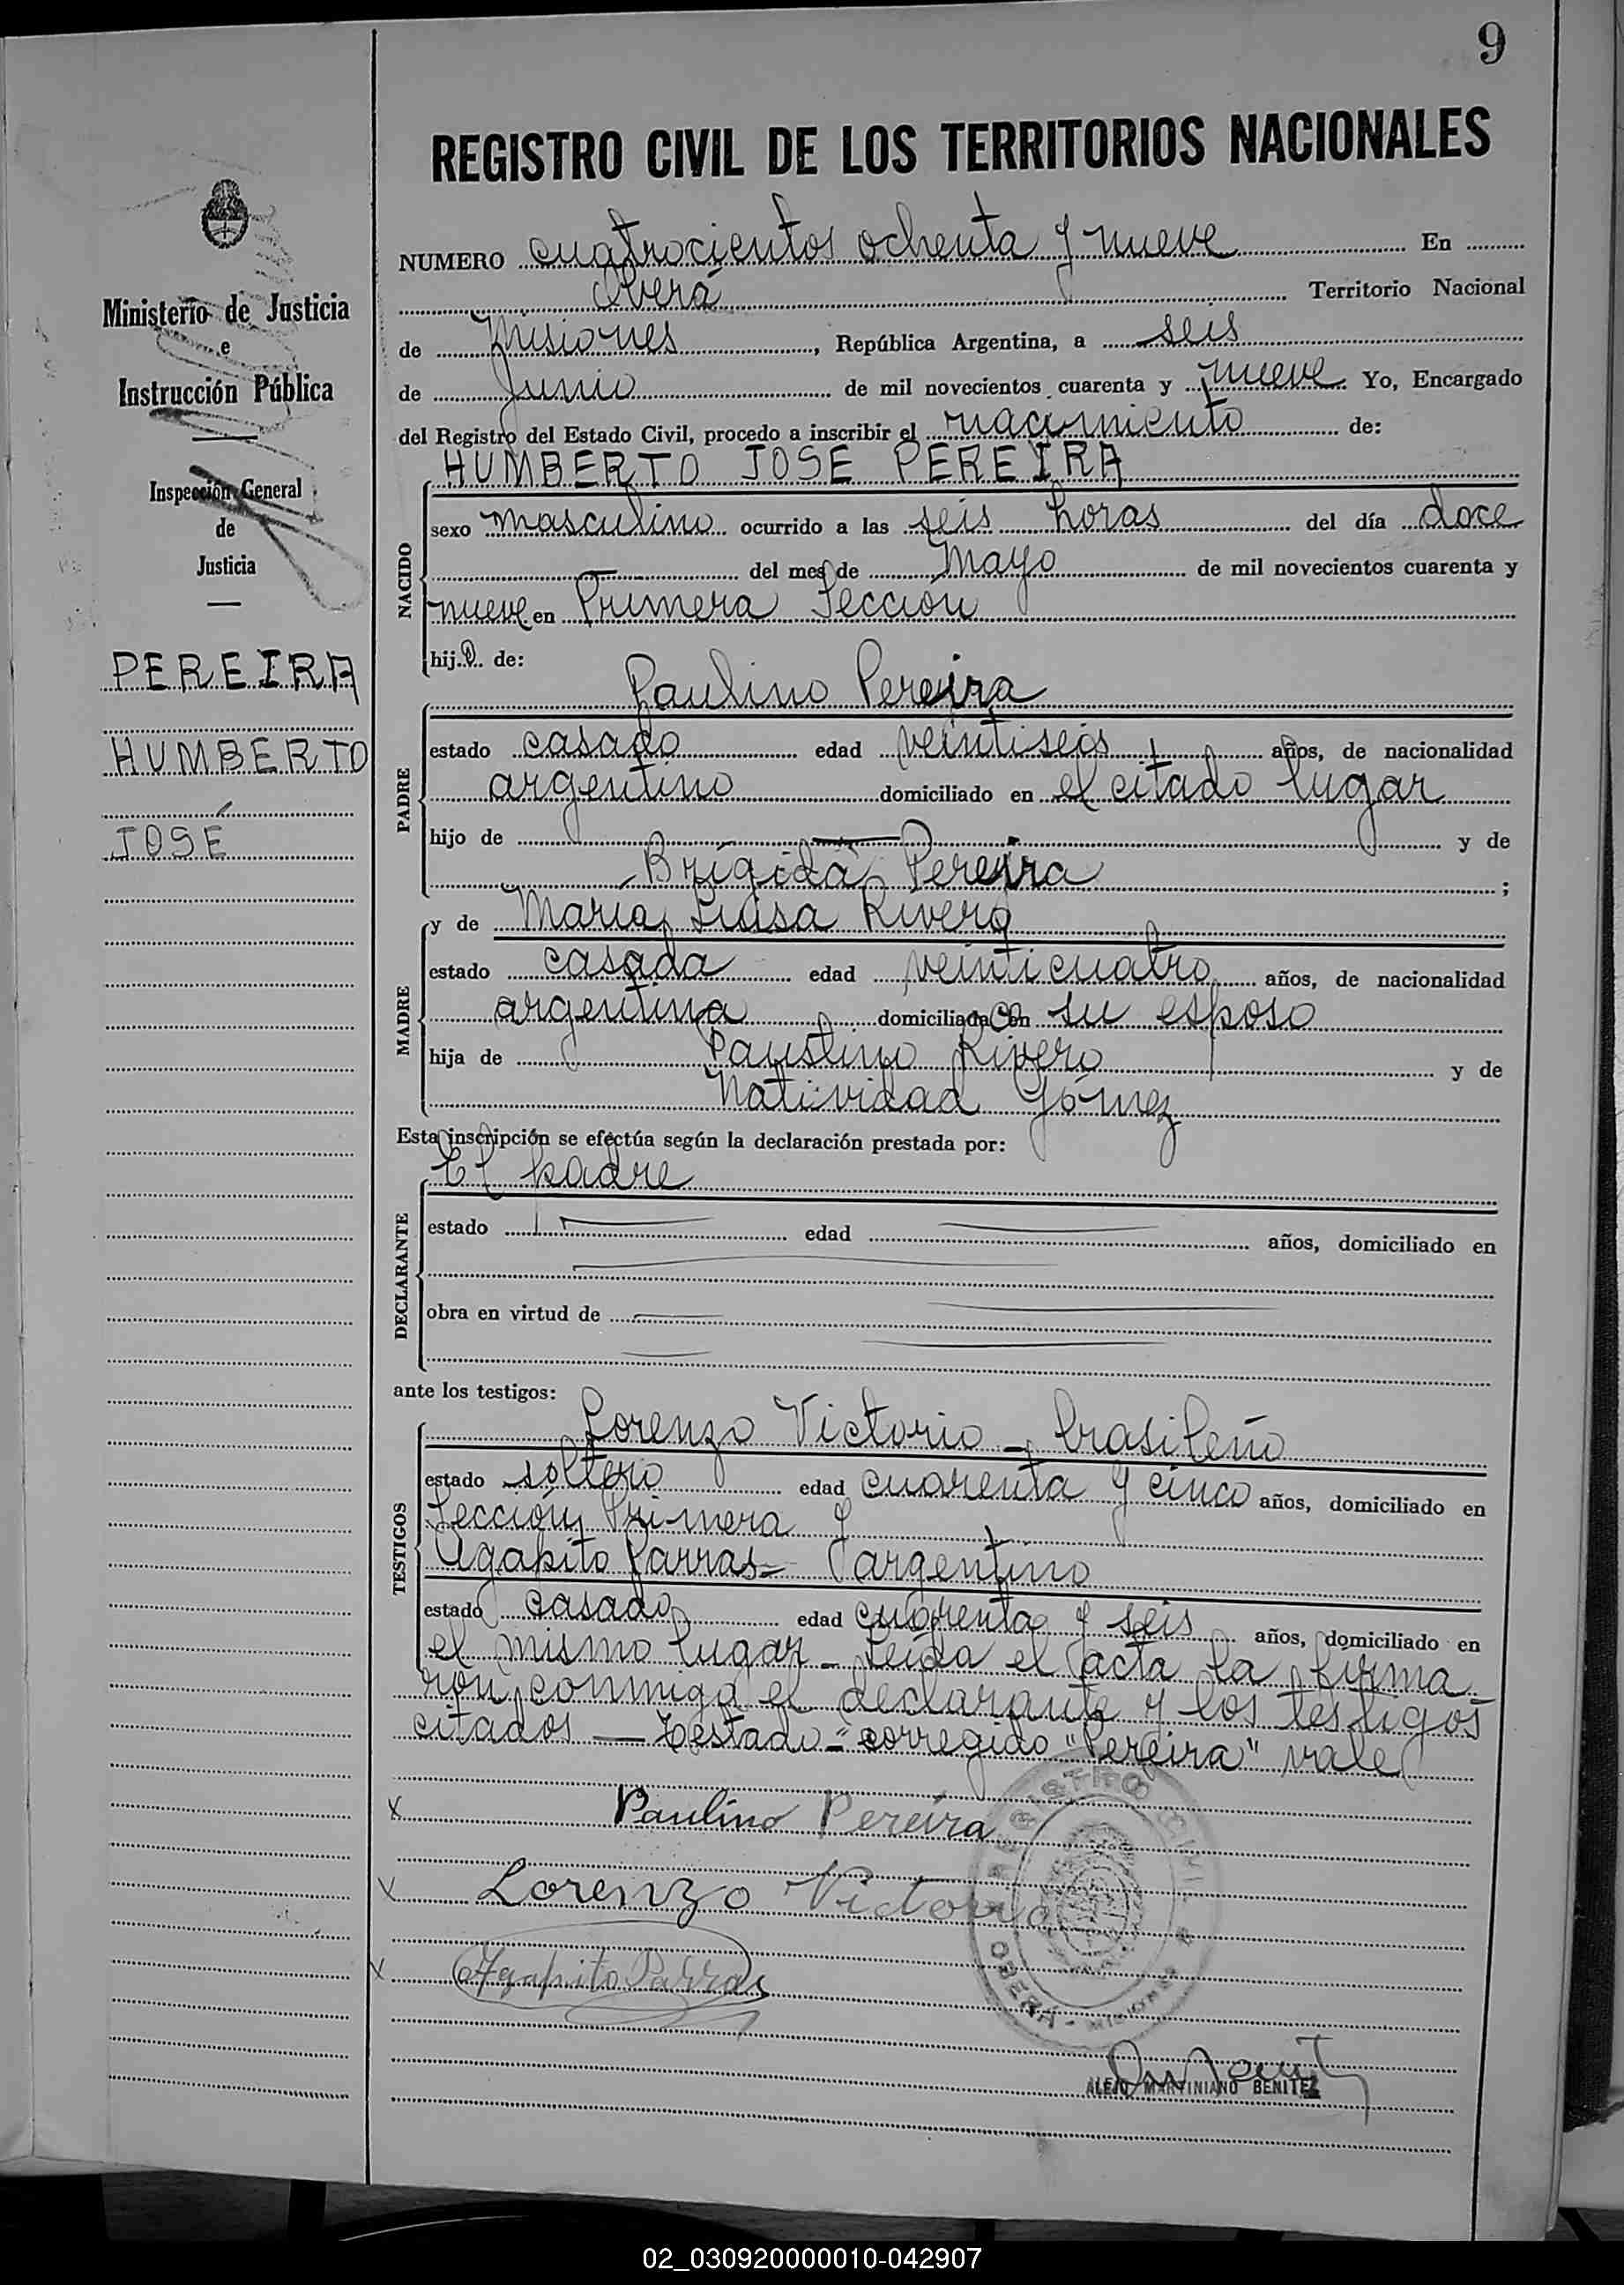 9
REGISTRO CIVIL DE LOS TERRITORIOS NACIONALES
NUMERO cuatrocientos ochenta y nueve En
Oberá Territorio Nacional
de Misiones, República Argentina, a seis
de Junio de mil novecientos cuarenta y nueve Yo, Encargado
del Registro del Estado Civil, procedo a inscribir el nacimiento de:
HUMBERTO JOSE PEREIRA
NACIDO
sexo masculino ocurrido a las seis horas del día doce
del mes de Mayo de mil novecientos cuarenta y
nueve en Primera Sección
hijo de:
Paulino Pereira
PADRE
estado casado edad veintiseis años, de nacionalidad
argentino domiciliado en el citado lugar
hijo de y de
Brígida Pereira ;
y de María Luisa Rivero
MADRE
estado casada edad veinticuatro años, de nacionalidad
argentina domiciliada con su esposo
hija de Faustino Rivero y de
Natividad Gómez
Esta inscripción se efectúa según la declaración prestada por:
El padre
DECLARANTE
estado edad años, domiciliado en
obra en virtud de
ante los testigos:
Lorenzo Victorio - brasileño
TESTIGOS
estado soltero edad cuarenta y cinco años, domiciliado en
Sección Primera y
Agapito Parras - argentino
estado casado edad cuarenta y seis años, domiciliado en
el mismo lugar - Leída el acta la firma
ron conmigo el declarante y los testigos
citados — Testado - corregido "Pereira" vale
x Paulino Pereira
x Lorenzo Victorio
x Agapito Parras
REGISTRO CIVIL
OBERÁ - MISIONES
ALEJO MARTINIANO BENITEZ
Ministerio de Justicia
e
Instrucción Pública
Inspección General
de
Justicia
PEREIRA
HUMBERTO
JOSÉ
02_030920000010-042907